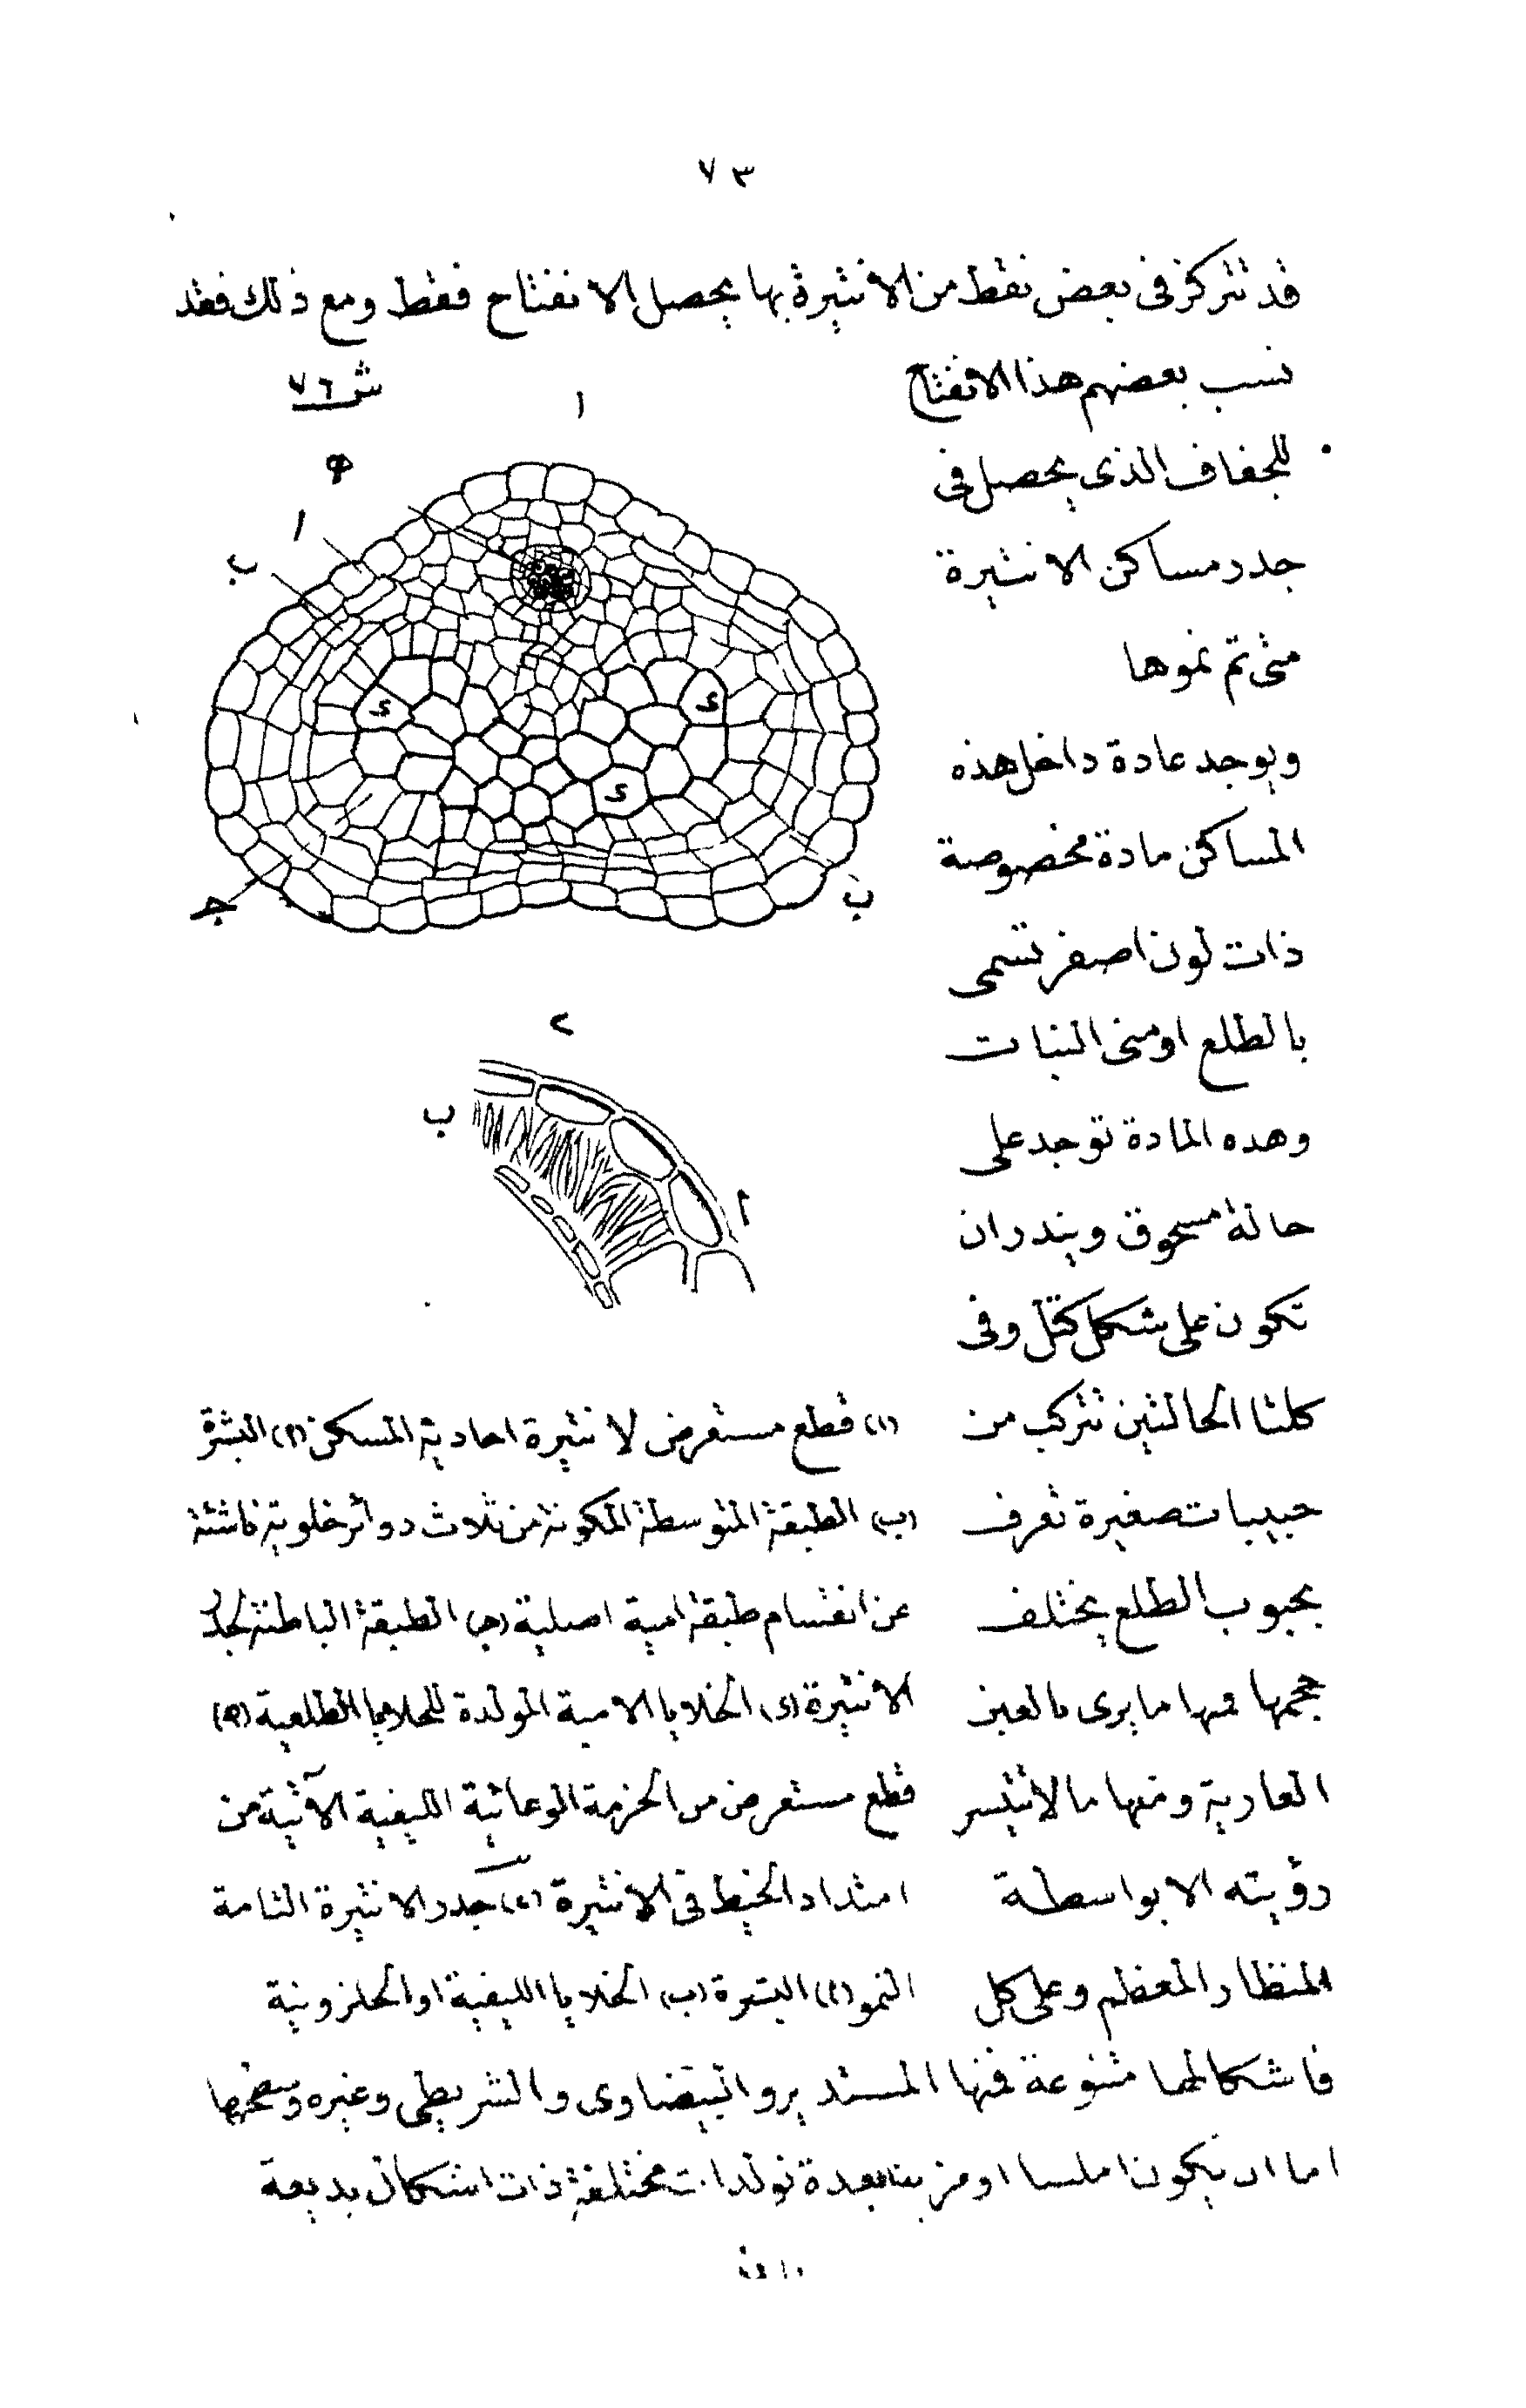 ٧٣
قد تتركز فى بعض نقط من الانثيرة بها يحصل الانفتاح فقط ومع ذلك فقد
نسب بعضهم هذا الانفتاح
للجفاف الذى يحصل فى
جدر مساكن الانثيرة
متى تم نموها
ويوجد عادة داخل هذه
المساكن مادة مخصوصة
ذات لون اصفر تسمى
بالطلع او منى النبات
وهده المادة توجد على
حالة مسحوق ويندر ان
تكون على شكل كتل وفى
كلتا الحالتين تتركب من
حبيبات صغيرة تعرف
بحبوب الطلع يختلف
حجمها فمنها ما يرى بالعين
العارية ومنها ما لا يتيسر
رؤيته الا بواسطة
المنظار المعظم وعلى كل
ش ٧٦
ا
ھ
ا
ب
ى
ى
ى
جـ
ب
٢
ب
ا
(١) قطع مستعرض لانثيرة احادية المسكن (ا) البشرة
(ب) الطبقة المتوسطة المكونة من ثلاث دوائر خلوية ناشئة
عن انقسام طبقة امية اصلية (جـ) الطبقة الباطنة لجدر
الانثيرة (ى) الخلايا الامية المولدة للخلايا الطلعية (ھ)
قطع مستعرض من الحزمة الوعائية الليفية الآتية من
امتداد الخيط فى الانثيرة (٢) جدر الانثيرة التامة
النمو (ا) البشرة (ب) الخلايا الليفية او الحلزونية
فاشكالها متنوعة فمنها المستدير والبيضاوى والشريطى وغيره وسطحها
اما ان يكون املسا او مزينا بعدة تولدات مختلفة ذات اشكال بديعة